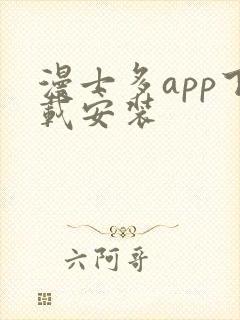 漫士多app下
载安装
六阿哥